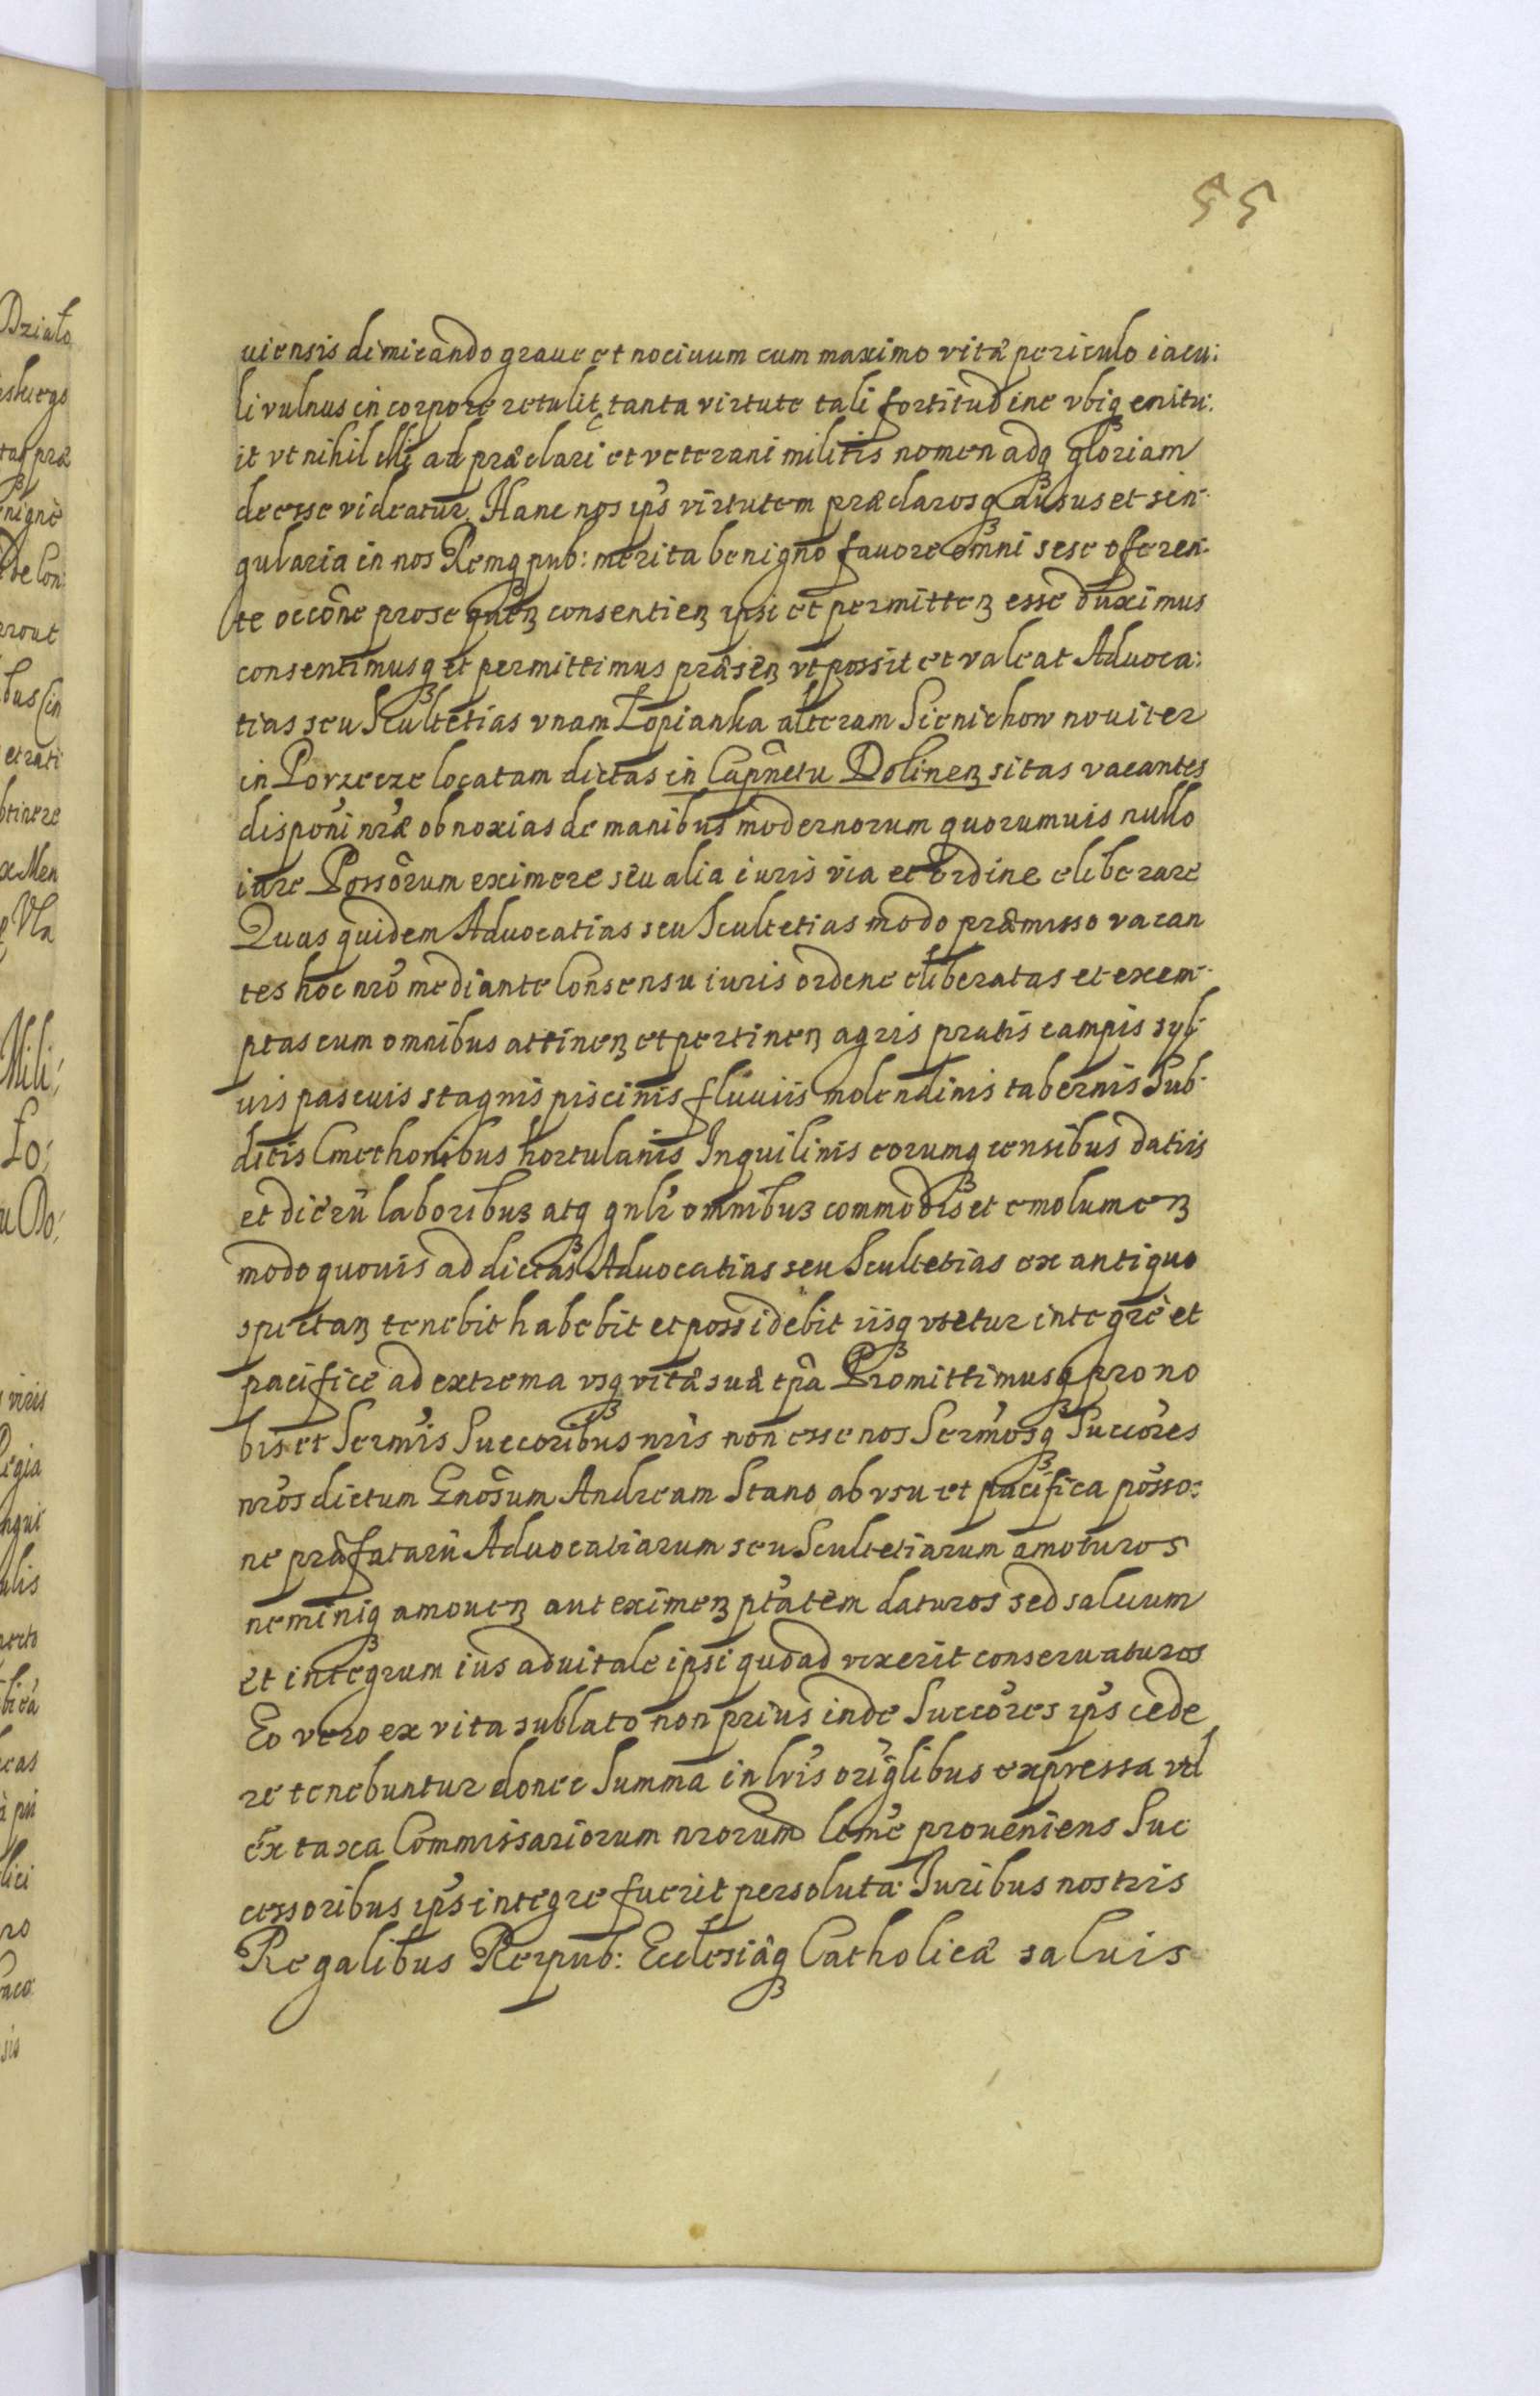 55
uiensis dimicando graue et nociuum cum maximo vitæ periculo iacu:
li vulnus in corpore retulit, tanta virtute tali fortitudine vbiqꝫ enitu:
it vt nihil illi ad præclari et veterani militis nomen adqꝫ gloriam
deesse videatur. Hanc nos ip̃s virtutem præclarosqꝫ ausus et sin-
gularia in nos Remqꝫ pub: merita benigno fauore omni sese oferen-
te occõne prosequeñ consentieñ ipsi et permitteñ esse duximus
consentimusqꝫ et permittimus præseñ vt possit et valeat Aduoca:
tias seu Scultetias vnam Łopianka alteram Sienichow nouiter
in Porzecze locatam dictas in Capñetu Dolineñ sitas vacantes
dispoñi nr̃æ obnoxias de manibus modernorum quorumuis nullo
iure Possõrum eximere seu alia iuris via et ordine eliberare
Quas quidem Aduocatias seu Scultetias modo præmisso vacan
tes hoc nr̃o mediante Consensu iuris ordine eliberatas et exem-
ptas cum omnibus attineñ et pertineñ agris pratis campis syl-
uis pascuis stagnis piscinis fluuiis molendinis tabernis Sub-
ditis Cmethonibus hortulanis Inquilinis eorumqꝫ censibus datiis
et dierũ laboribus atqꝫ gñlr omnibus commodis et emolumeñ
modo quouis ad dictas Aduocatias seu Scultetias ex antiquo
spectañ tenebit habebit et possidebit iisqꝫ vtetur integrè et
pacificè ad extrema vsqꝫ vitæ suæ tp̃a Promittimusqꝫ pro no
bis et Serm̃is Succoribus nr̃is non esse nos Serm̃osqꝫ Succõres
nr̃os dictum Gnõsum Andream Stano ab vsu et pacifica posso:
ne præfatarũ Aduocatiarum seu Scultetiarum amoturos
neminiqꝫ amoueñ aut eximeñ ptãtem daturos sed saluum
et integrum ius aduitale ipsi quoad vixerit conseruaturos
Eo vero ex vita sublato non prius inde Succõres ip̃s cede
re tenebuntur donec Summa in lr̃is orig̃libus expressa vel
ex taxa Commissariorum nrorum leme proueniens Suc
cessoribus ip̃s integre fuerit persoluta. Iuribus nostris
Regalibus Reipub: Ecclesiæqꝫ Catholicæ saluis